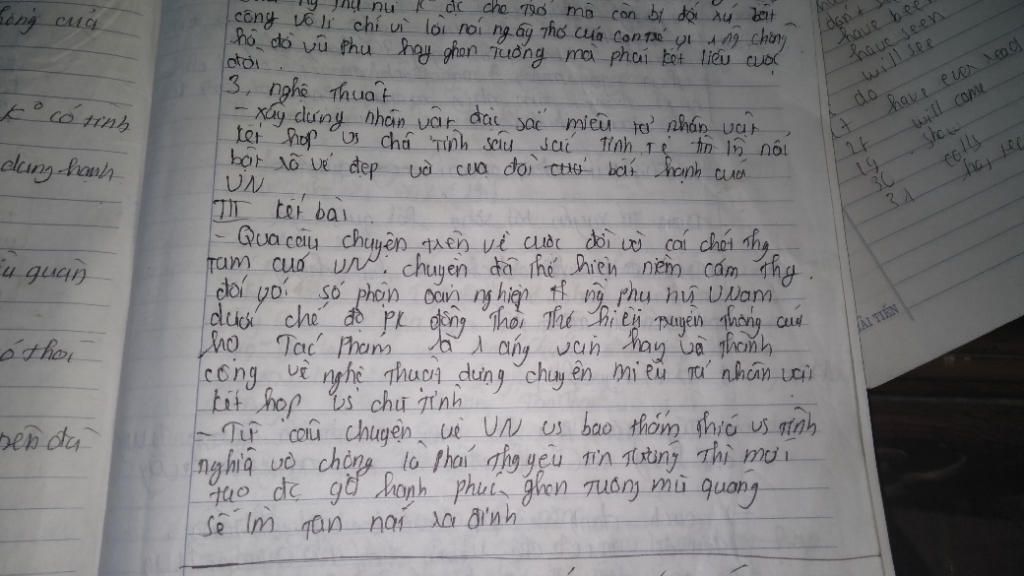 công vô lí chỉ vì lời nói ngây thơ của con trẻ vì 1 ng chồng
hồ đồ vũ phu hay ghen tuông mà phải kết liễu cuộc
đời.
3, nghệ thuật
- xây dựng nhân vật đặc sắc miêu tả nhân vật
kết hợp vs chữ tình sâu sắc tinh tế
bật rõ vẻ đẹp và cuộc đời bất hạnh của
VN
III kết bài
- Qua câu chuyện trên về cuộc đời và cái chết thg
tâm của VN. chuyện đã thể hiện niềm cảm thg
đối với số phận oan nghiệp ng phụ nữ VNam
dưới chế độ PK đồng thời thể hiện truyền thống của
họ Tác phẩm là 1 áng văn hay và thành
công về nghệ thuật dựng chuyện miêu tả nhân vật
kết hợp vs chữ tình
- Từ câu chuyện về VN vs bao thấm thía vs tình
nghĩa vợ chồng là phải thg yêu tin tưởng thì mới
tạo đc gđ hạnh phúc, ghen tuông mù quáng
sẽ lm tan nát gia đình
hồng của
k° có tình
dung hạnh
quan
ó thời
nền đã
have been
have seen
will see
do
have ever read
will come
27
29
30
31
calls
HẢI TIẾN